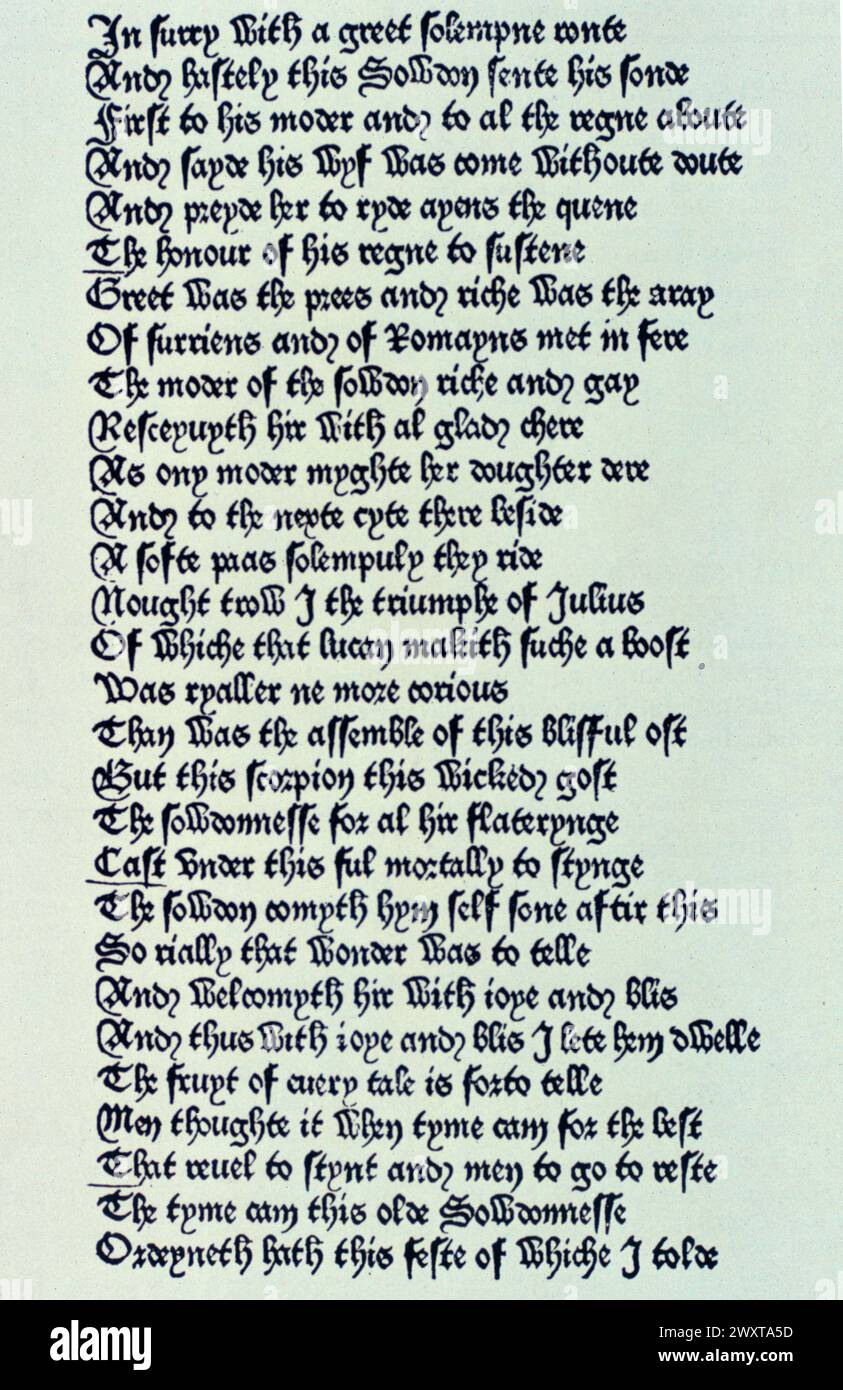 In surry With a greet solempne route
And hastely this Sowdon sente his sonde
First to his moder and to al the regne aboute
And sayde his Wyf Was come Withoute doute
And preyde her to ryde ayens the quene
The honour of his regne to sustene
Greet Was the prees and riche Was the aray
Of surriens and of Romayns met in fere
The moder of the sowdon riche and gay
Resceyuyth hir With al glad chere
As ony moder myghte her doughter dere
And to the nexte cyte there beside
A softe paas solempuly they ride
Nought trow I the triumphe of Julius
Of Whiche that lucan makith suche a boost
Was ryaller ne more corious
Than Was the assemble of this blisful ost
But this scorpion this Wicked gost
The sowdonnesse for al hir flaterynge
Cast vnder this ful mortally to stynge
The sowdon comyth hym self sone aftir this
So rially that Wonder Was to telle
And Welcomyth hir With ioye and blis
And thus With ioye and blis I lete hem dwelle
The fruyt of euery tale is forto telle
Men thoughte it When tyme cam for the best
That reuel to stynt and men to go to reste
The tyme cam this olde Sowdonnesse
Ordeyneth hath this feste of Whiche I tolde
alamy
Image ID: 2WXTA5D
www.alamy.com